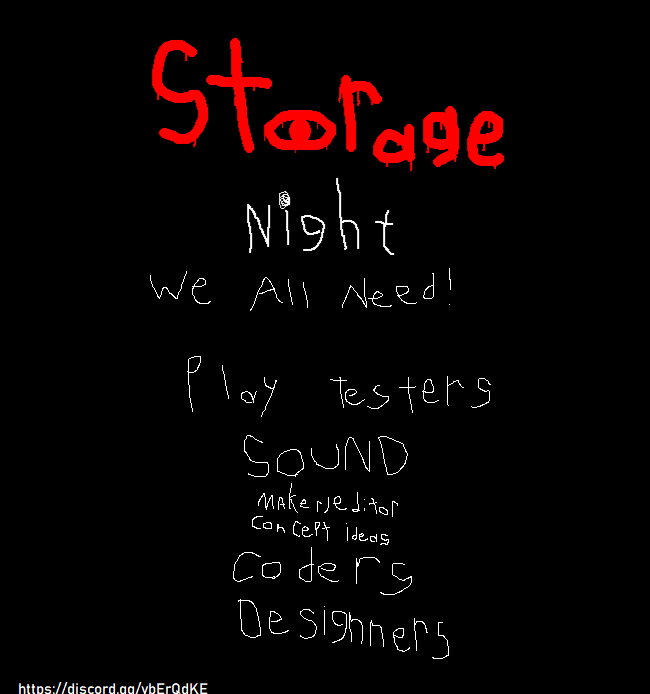 Storage
Night
We All Need!
Play Testers
SOUND
Maker/editor
Concept ideas
Coders
Designners
https://discord.gg/vbErQdKE